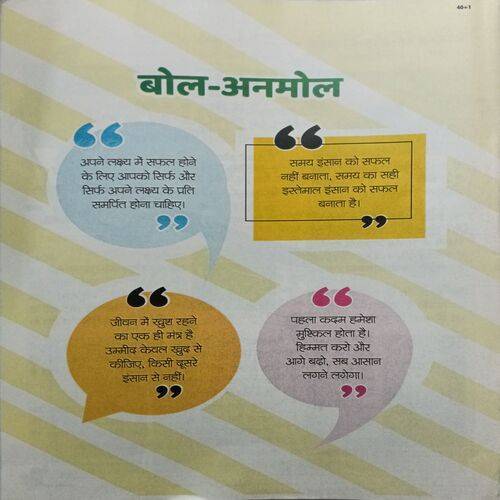 40+1
बोल-अनमोल
अपने लक्ष्य में सफल होने
के लिए आपको सिर्फ और
सिर्फ अपने लक्ष्य के प्रति
समर्पित होना चाहिए।
समय इंसान को सफल
नहीं बनाता, समय का सही
इस्तेमाल इंसान को सफल
बनाता है।
जीवन में खुश रहने
का एक ही मंत्र है
उम्मीद केवल खुद से
कीजिए, किसी दूसरे
इंसान से नहीं।
पहला कदम हमेशा
मुश्किल होता है।
हिम्मत करो और
आगे बढ़ो, सब आसान
लगने लगेगा।